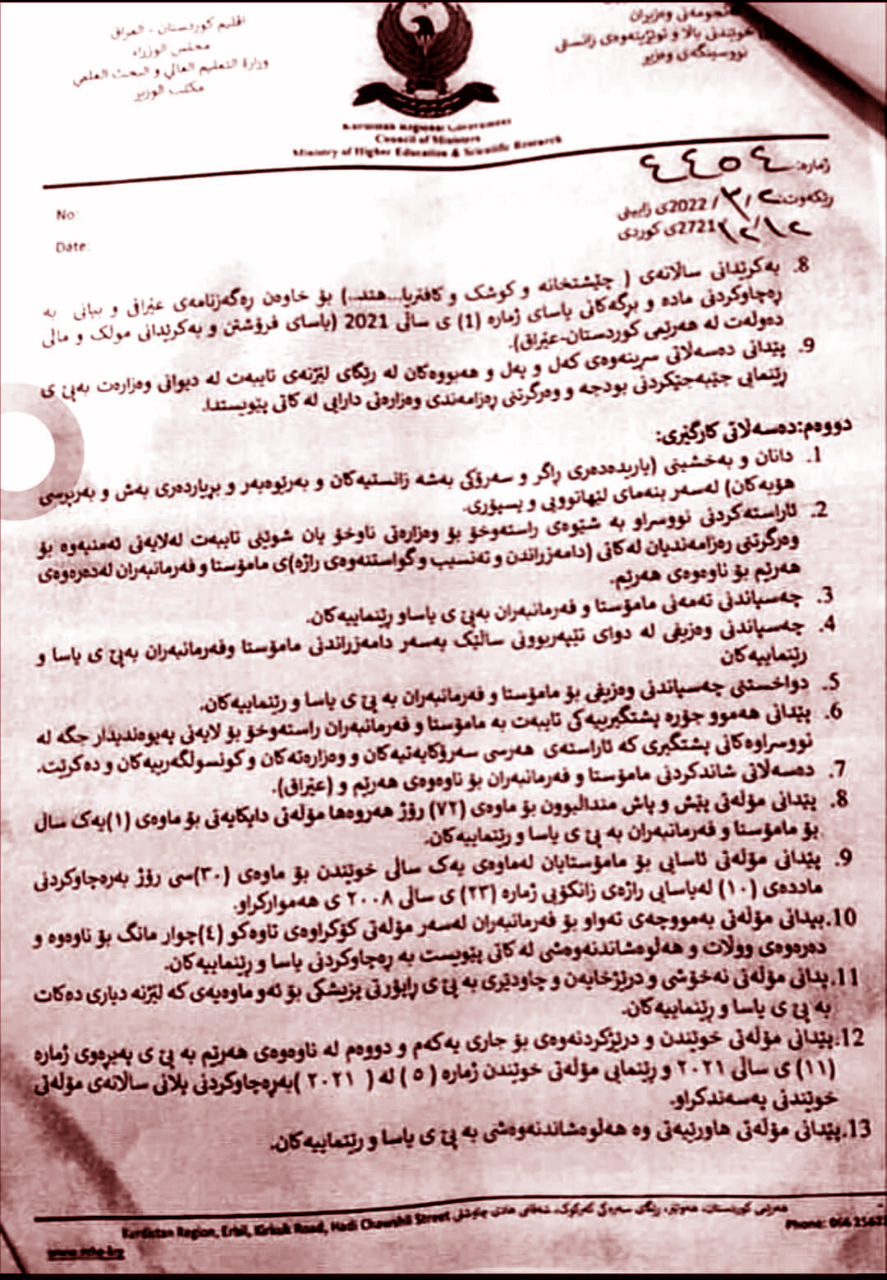 اقليم كوردستان - العراق
مجلس الوزراء
وزارة التعليم العالي و البحث العلمي
مكتب الوزير
ئەنجومەنی وەزیران
خوێندنی باڵا و توێژینەوەی زانستی
نووسینگەی وەزیر
Kurdistan Regional Government
Council of Ministers
Ministry of Higher Education & Scientific Research
ژمارە: ٤٤٥٤
ڕێکەوت: ٢/٣/2022ی زایینی
١٢/١٢/2721ی کوردی
No:
Date:
8. بەکرێدانی ساڵانەی ( چێشتخانە و کوشک و کافتریا...هتد..) بۆ خاوەن ڕەگەزنامەی عێراقی و بیانی بە
ڕەچاوکردنی مادە و بڕگەکانی یاسای ژمارە (1) ی ساڵی 2021 (یاسای فرۆشتن و بەکرێدانی مولک و ماڵی
دەوڵەت لە هەرێمی کوردستان-عێراق).
9. پێدانی دەسەڵاتی سڕینەوەی کەل و پەل و هەبووەکان لە ڕێگای لێژنەی تایبەت لە دیوانی وەزارەت بەپێ ی
ڕێنمایی جێبەجێکردنی بودجە و وەرگرتنی ڕەزامەندی وەزارەتی دارایی لە کاتی پێویستدا.
دووەم:دەسەڵاتی کارگێڕی:
1. دانان و بەخشینی (یاریدەدەری ڕاگر و سەرۆکی بەشە زانستیەکان و بەڕێوەبەر و بڕیاردەری بەش و بەرپرسی
هۆبەکان) لەسەر بنەمای لێهاتوویی و پسپۆڕی.
2. ئاراستەکردنی نووسراو بە شێوەی راستەوخۆ بۆ وەزارەتی ناوخۆ یان شوێنی تایبەت لەلایەنی ئەمنیەوە بۆ
وەرگرتنی ڕەزامەندیان لەکاتی (دامەزراندن و تەنسیب و گواستنەوەی راژە)ی مامۆستا و فەرمانبەران لەدەرەوەی
هەرێم بۆ ناوەوەی هەرێم.
3. چەسپاندنی تەمەنی مامۆستا و فەرمانبەران بەپێ ی یاساو ڕێنماییەکان.
4. چەسپاندنی وەزیفی لە دوای تێپەربوونی ساڵێک بەسەر دامەزراندنی مامۆستا وفەرمانبەران بەپێ ی یاسا و
رێنماییەکان
5. دواخستنی چەسپاندنی وەزیفی بۆ مامۆستا و فەرمانبەران بە پێ ی یاسا و رێنماییەکان.
6. پێدانی هەموو جۆرە پشتگیرییەکی تایبەت بە مامۆستا و فەرمانبەران راستەوخۆ بۆ لایەنی پەیوەندیدار جگە لە
نووسراوەکانی پشتگیری کە ئاراستەی هەرسێ سەرۆکایەتیەکان و وەزارەتەکان و کونسوڵگەرییەکان و دەکرێت.
7. دەسەڵاتی شاندکردنی مامۆستا و فەرمانبەران بۆ ناوەوەی هەرێم و (عێراق).
8. پێدانی مۆڵەتی پێش و پاش منداڵبوون بۆ ماوەی (٧٢) رۆژ هەروەها مۆڵەتی دایکایەتی بۆ ماوەی (١)یەک ساڵ
بۆ مامۆستا و فەرمانبەران بە پێ ی یاسا و ڕێنماییەکان.
9. پێدانی مۆڵەتی ئاسایی بۆ مامۆستایان لەماوەی یەک ساڵی خوێندن بۆ ماوەی (٣٠)سی رۆژ بەرەچاوکردنی
ماددەی (١٠) لەیاسایی راژەی زانکۆیی ژمارە (٢٣) ی ساڵی ٢٠٠٨ ی هەموارکراو.
10.پیدانی مۆڵەتی بەمووچەی تەواو بۆ فەرمانبەران لەسەر مۆڵەتی کۆکراوەی تاوەکو (٤)چوار مانگ بۆ ناوەوە و
دەرەوەی وولات و هەڵوەشاندنەوەشی لە کاتی پێویست بە ڕەچاوکردنی یاسا و ڕێنماییەکان.
11.پدانی مۆڵەتی نەخۆشی و درێژخایەن و چاودێری بە پێ ی ڕاپۆرتی پزیشکی بۆ ئەو ماوەیەی کە لێژنە دیاری دەکات
بە پێ ی یاسا و ڕێنماییەکان.
12.پێدانی مۆڵەتی خوێندن و درێژکردنەوەی بۆ جاری یەکەم و دووەم لە ناوەوەی هەرێم بە پێ ی پەیرەوی ژمارە
(١١) ی ساڵی ٢٠٢١ و رێنمایی مۆڵەتی خوێندن ژمارە ( ٥ ) لە ( ٢٠٢١ )بەرەچاوکردنی پلانی ساڵانەی مۆڵەتی
خوێندنی پەسەندکراو.
13.پێدانی مۆڵەتی هاوڕێیەتی وە هەڵوەشاندنەوەشی بە پێ ی یاسا و رێنماییەکان.
هەرێمی کوردستان، هەولێر، ڕێگای سەرەکی کەرکوک، شەقامی هادی چاوشلی
Kurdistan Region, Erbil, Kirkuk Road, Hadi Chawshli Street
Phone: 066 2562